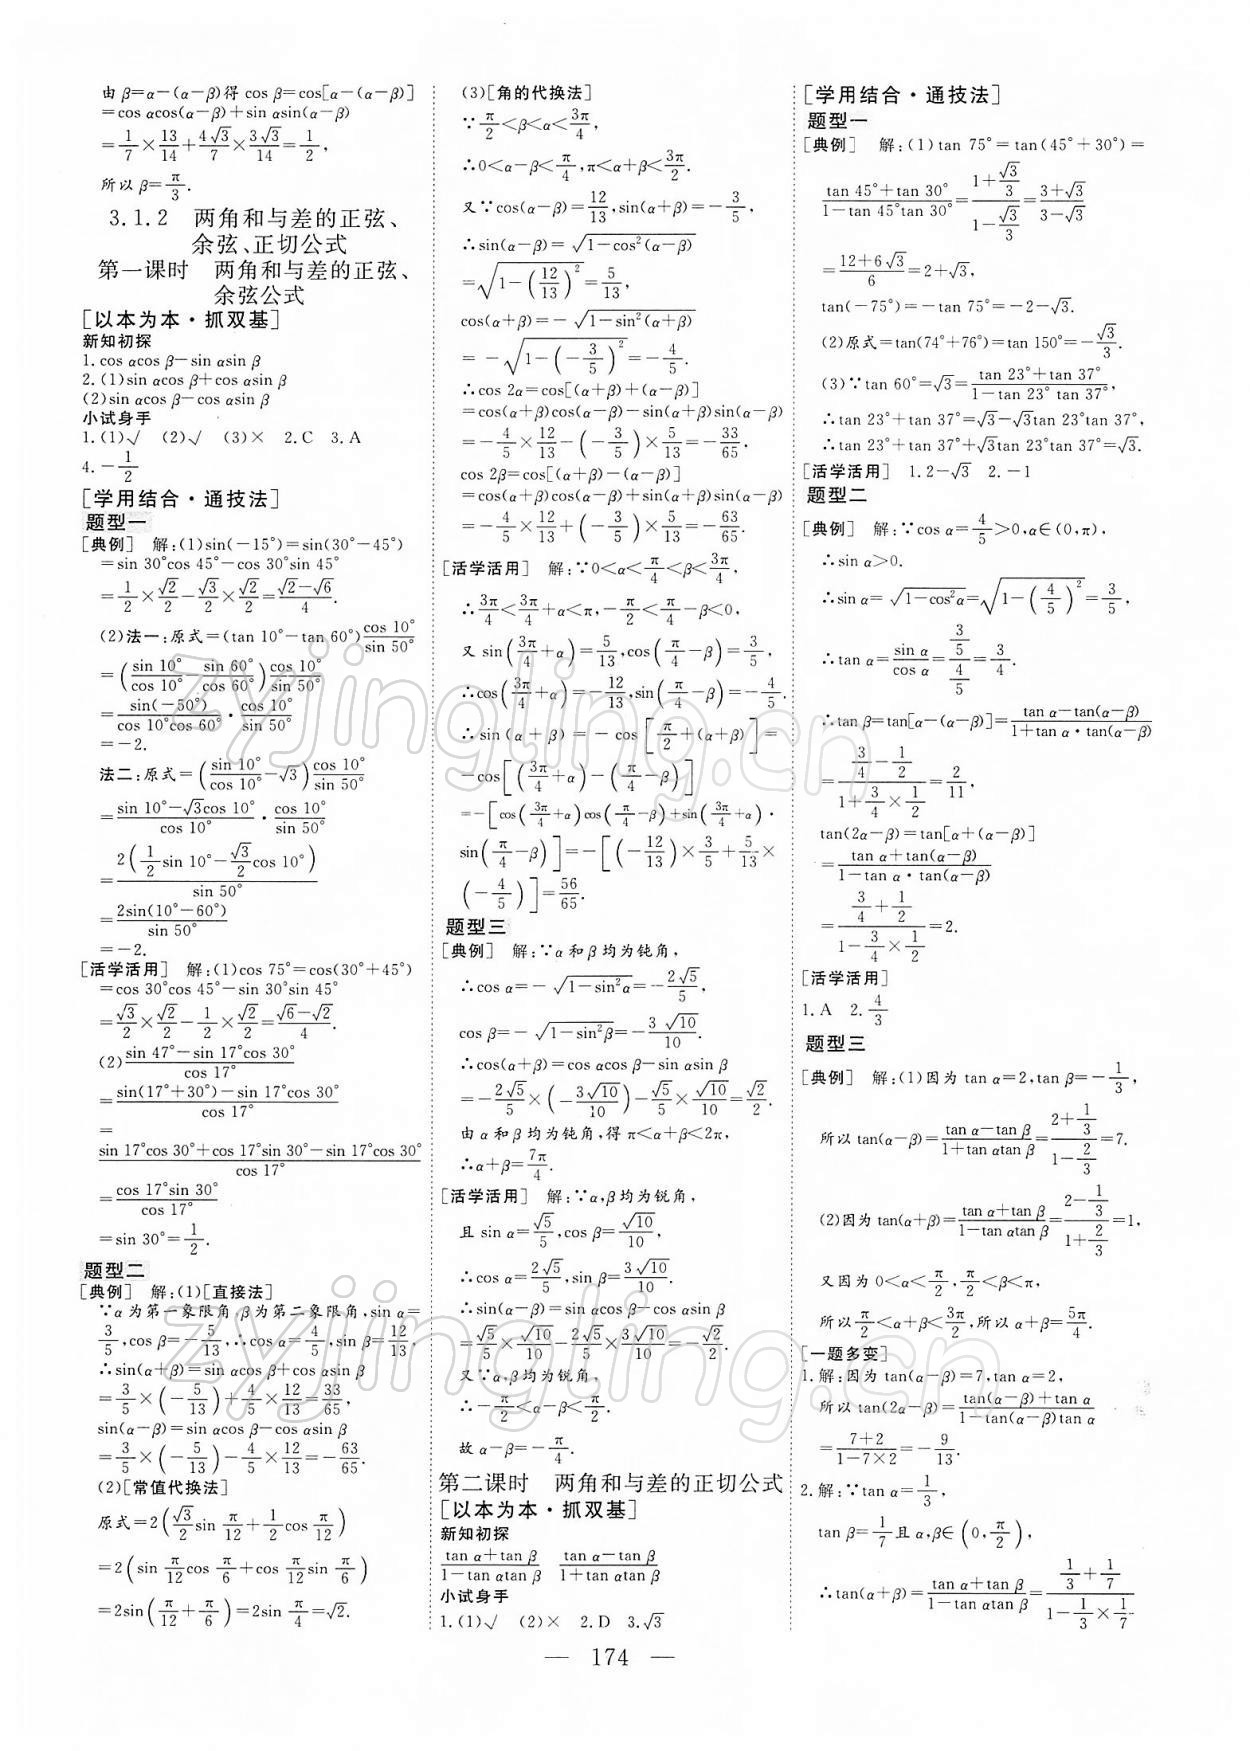 由 β=α-(α-β)得 cos β=cos[α-(α-β)]
=cos αcos(α-β)+sin αsin(α-β)
=1/7×13/14+4√3/7×3√3/14=1/2,
所以 β=π/3.
3.1.2 两角和与差的正弦、
余弦、正切公式
第一课时 两角和与差的正弦、
余弦公式
[以本为本·抓双基]
新知初探
1. cos αcos β-sin αsin β
2. (1)sin αcos β+cos αsin β
(2)sin αcos β-cos αsin β
小试身手
1. (1)√ (2)√ (3)× 2. C 3. A
4. -1/2
[学用结合·通技法]
题型一
[典例] 解:(1)sin(-15°)=sin(30°-45°)
=sin 30°cos 45°-cos 30°sin 45°
=1/2×√2/2-√3/2×√2/2=(√2-√6)/4.
(2)法一:原式=(tan 10°-tan 60°)cos 10°/sin 50°
=(sin 10°/cos 10°-sin 60°/cos 60°)cos 10°/sin 50°
=sin(-50°)/(cos 10°cos 60°)·cos 10°/sin 50°
=-2.
法二:原式=(sin 10°/cos 10°-√3)cos 10°/sin 50°
=(sin 10°-√3cos 10°)/cos 10°·cos 10°/sin 50°
=2(1/2sin 10°-√3/2cos 10°)/sin 50°
=2sin(10°-60°)/sin 50°
=-2.
[活学活用] 解:(1)cos 75°=cos(30°+45°)
=cos 30°cos 45°-sin 30°sin 45°
=√3/2×√2/2-1/2×√2/2=(√6-√2)/4.
(2)(sin 47°-sin 17°cos 30°)/cos 17°
=(sin(17°+30°)-sin 17°cos 30°)/cos 17°
=
(sin 17°cos 30°+cos 17°sin 30°-sin 17°cos 30°)/cos 17°
=cos 17°sin 30°/cos 17°
=sin 30°=1/2.
题型二
[典例] 解:(1)[直接法]
∵α为第一象限角,β为第二象限角,sin α=
3/5,cos β=-5/13,∴cos α=4/5,sin β=12/13,
∴sin(α+β)=sin αcos β+cos αsin β
=3/5×(-5/13)+4/5×12/13=33/65,
sin(α-β)=sin αcos β-cos αsin β
=3/5×(-5/13)-4/5×12/13=-63/65.
(2)[常值代换法]
原式=2(√3/2sin π/12+1/2cos π/12)
=2(sin π/12cos π/6+cos π/12sin π/6)
=2sin(π/12+π/6)=2sin π/4=√2.
(3)[角的代换法]
∵π/2<β<α<3π/4,
∴0<α-β<π/4,π<α+β<3π/2.
又∵cos(α-β)=12/13,sin(α+β)=-3/5,
∴sin(α-β)=√(1-cos²(α-β))
=√(1-(12/13)²)=5/13,
cos(α+β)=-√(1-sin²(α+β))
=-√(1-(-3/5)²)=-4/5.
∴cos 2α=cos[(α+β)+(α-β)]
=cos(α+β)cos(α-β)-sin(α+β)sin(α-β)
=-4/5×12/13-(-3/5)×5/13=-33/65.
cos 2β=cos[(α+β)-(α-β)]
=cos(α+β)cos(α-β)+sin(α+β)sin(α-β)
=-4/5×12/13+(-3/5)×5/13=-63/65.
[活学活用] 解:∵0<α<π/4<β<3π/4,
∴3π/4<3π/4+α<π,-π/2<π/4-β<0,
又 sin(3π/4+α)=5/13,cos(π/4-β)=3/5,
∴cos(3π/4+α)=-12/13,sin(π/4-β)=-4/5.
∴sin(α+β)=-cos[π/2+(α+β)]=
-cos[(3π/4+α)-(π/4-β)]
=-[cos(3π/4+α)cos(π/4-β)+sin(3π/4+α)·
sin(π/4-β)]=-[(-12/13)×3/5+5/13×
(-4/5)]=56/65.
题型三
[典例] 解:∵α和β均为钝角,
∴cos α=-√(1-sin²α)=-2√5/5,
cos β=-√(1-sin²β)=-3√10/10.
∴cos(α+β)=cos αcos β-sin αsin β
=-2√5/5×(-3√10/10)-√5/5×√10/10=√2/2.
由α和β均为钝角,得π<α+β<2π,
∴α+β=7π/4.
[活学活用] 解:∵α,β均为锐角,
且 sin α=√5/5,cos β=√10/10,
∴cos α=2√5/5,sin β=3√10/10.
∴sin(α-β)=sin αcos β-cos αsin β
=√5/5×√10/10-2√5/5×3√10/10=-√2/2.
又∵α,β均为锐角,
∴-π/2<α-β<π/2.
故 α-β=-π/4.
第二课时 两角和与差的正切公式
[以本为本·抓双基]
新知初探
(tan α+tan β)/(1-tan αtan β) (tan α-tan β)/(1+tan αtan β)
小试身手
1. (1)√ (2)× 2. D 3. √3
[学用结合·通技法]
题型一
[典例] 解:(1)tan 75°=tan(45°+30°)=
(tan 45°+tan 30°)/(1-tan 45°tan 30°)=(1+√3/3)/(1-√3/3)=(3+√3)/(3-√3)
=(12+6√3)/6=2+√3,
tan(-75°)=-tan 75°=-2-√3.
(2)原式=tan(74°+76°)=tan 150°=-√3/3.
(3)∵tan 60°=√3=(tan 23°+tan 37°)/(1-tan 23° tan 37°),
∴tan 23°+tan 37°=√3-√3tan 23°tan 37°,
∴tan 23°+tan 37°+√3tan 23°tan 37°=√3.
[活学活用] 1. 2-√3 2. -1
题型二
[典例] 解:∵cos α=4/5>0,α∈(0,π),
∴sin α>0.
∴sin α=√(1-cos²α)=√(1-(4/5)²)=3/5,
∴tan α=sin α/cos α=(3/5)/(4/5)=3/4.
∴tan β=tan[α-(α-β)]=(tan α-tan(α-β))/(1+tan α·tan(α-β))
=(3/4-1/2)/(1+3/4×1/2)=2/11,
tan(2α-β)=tan[α+(α-β)]
=(tan α+tan(α-β))/(1-tan α·tan(α-β))
=(3/4+1/2)/(1-3/4×1/2)=2.
[活学活用]
1. A 2. 4/3
题型三
[典例] 解:(1)因为 tan α=2,tan β=-1/3,
所以 tan(α-β)=(tan α-tan β)/(1+tan αtan β)=(2+1/3)/(1-2/3)=7.
(2)因为 tan(α+β)=(tan α+tan β)/(1-tan αtan β)=(2-1/3)/(1+2/3)=1,
又因为 0<α<π/2,π/2<β<π,
所以π/2<α+β<3π/2,所以 α+β=5π/4.
[一题多变]
1. 解:因为 tan(α-β)=7,tan α=2,
所以 tan(2α-β)=(tan(α-β)+tan α)/(1-tan(α-β)tan α)
=(7+2)/(1-7×2)=-9/13.
2. 解:∵tan α=1/3,
tan β=1/7且 α,β∈(0,π/2),
∴tan(α+β)=(tan α+tan β)/(1-tan αtan β)=(1/3+1/7)/(1-1/3×1/7)
— 174 —
zyjingling.cn
zyjingling.cn